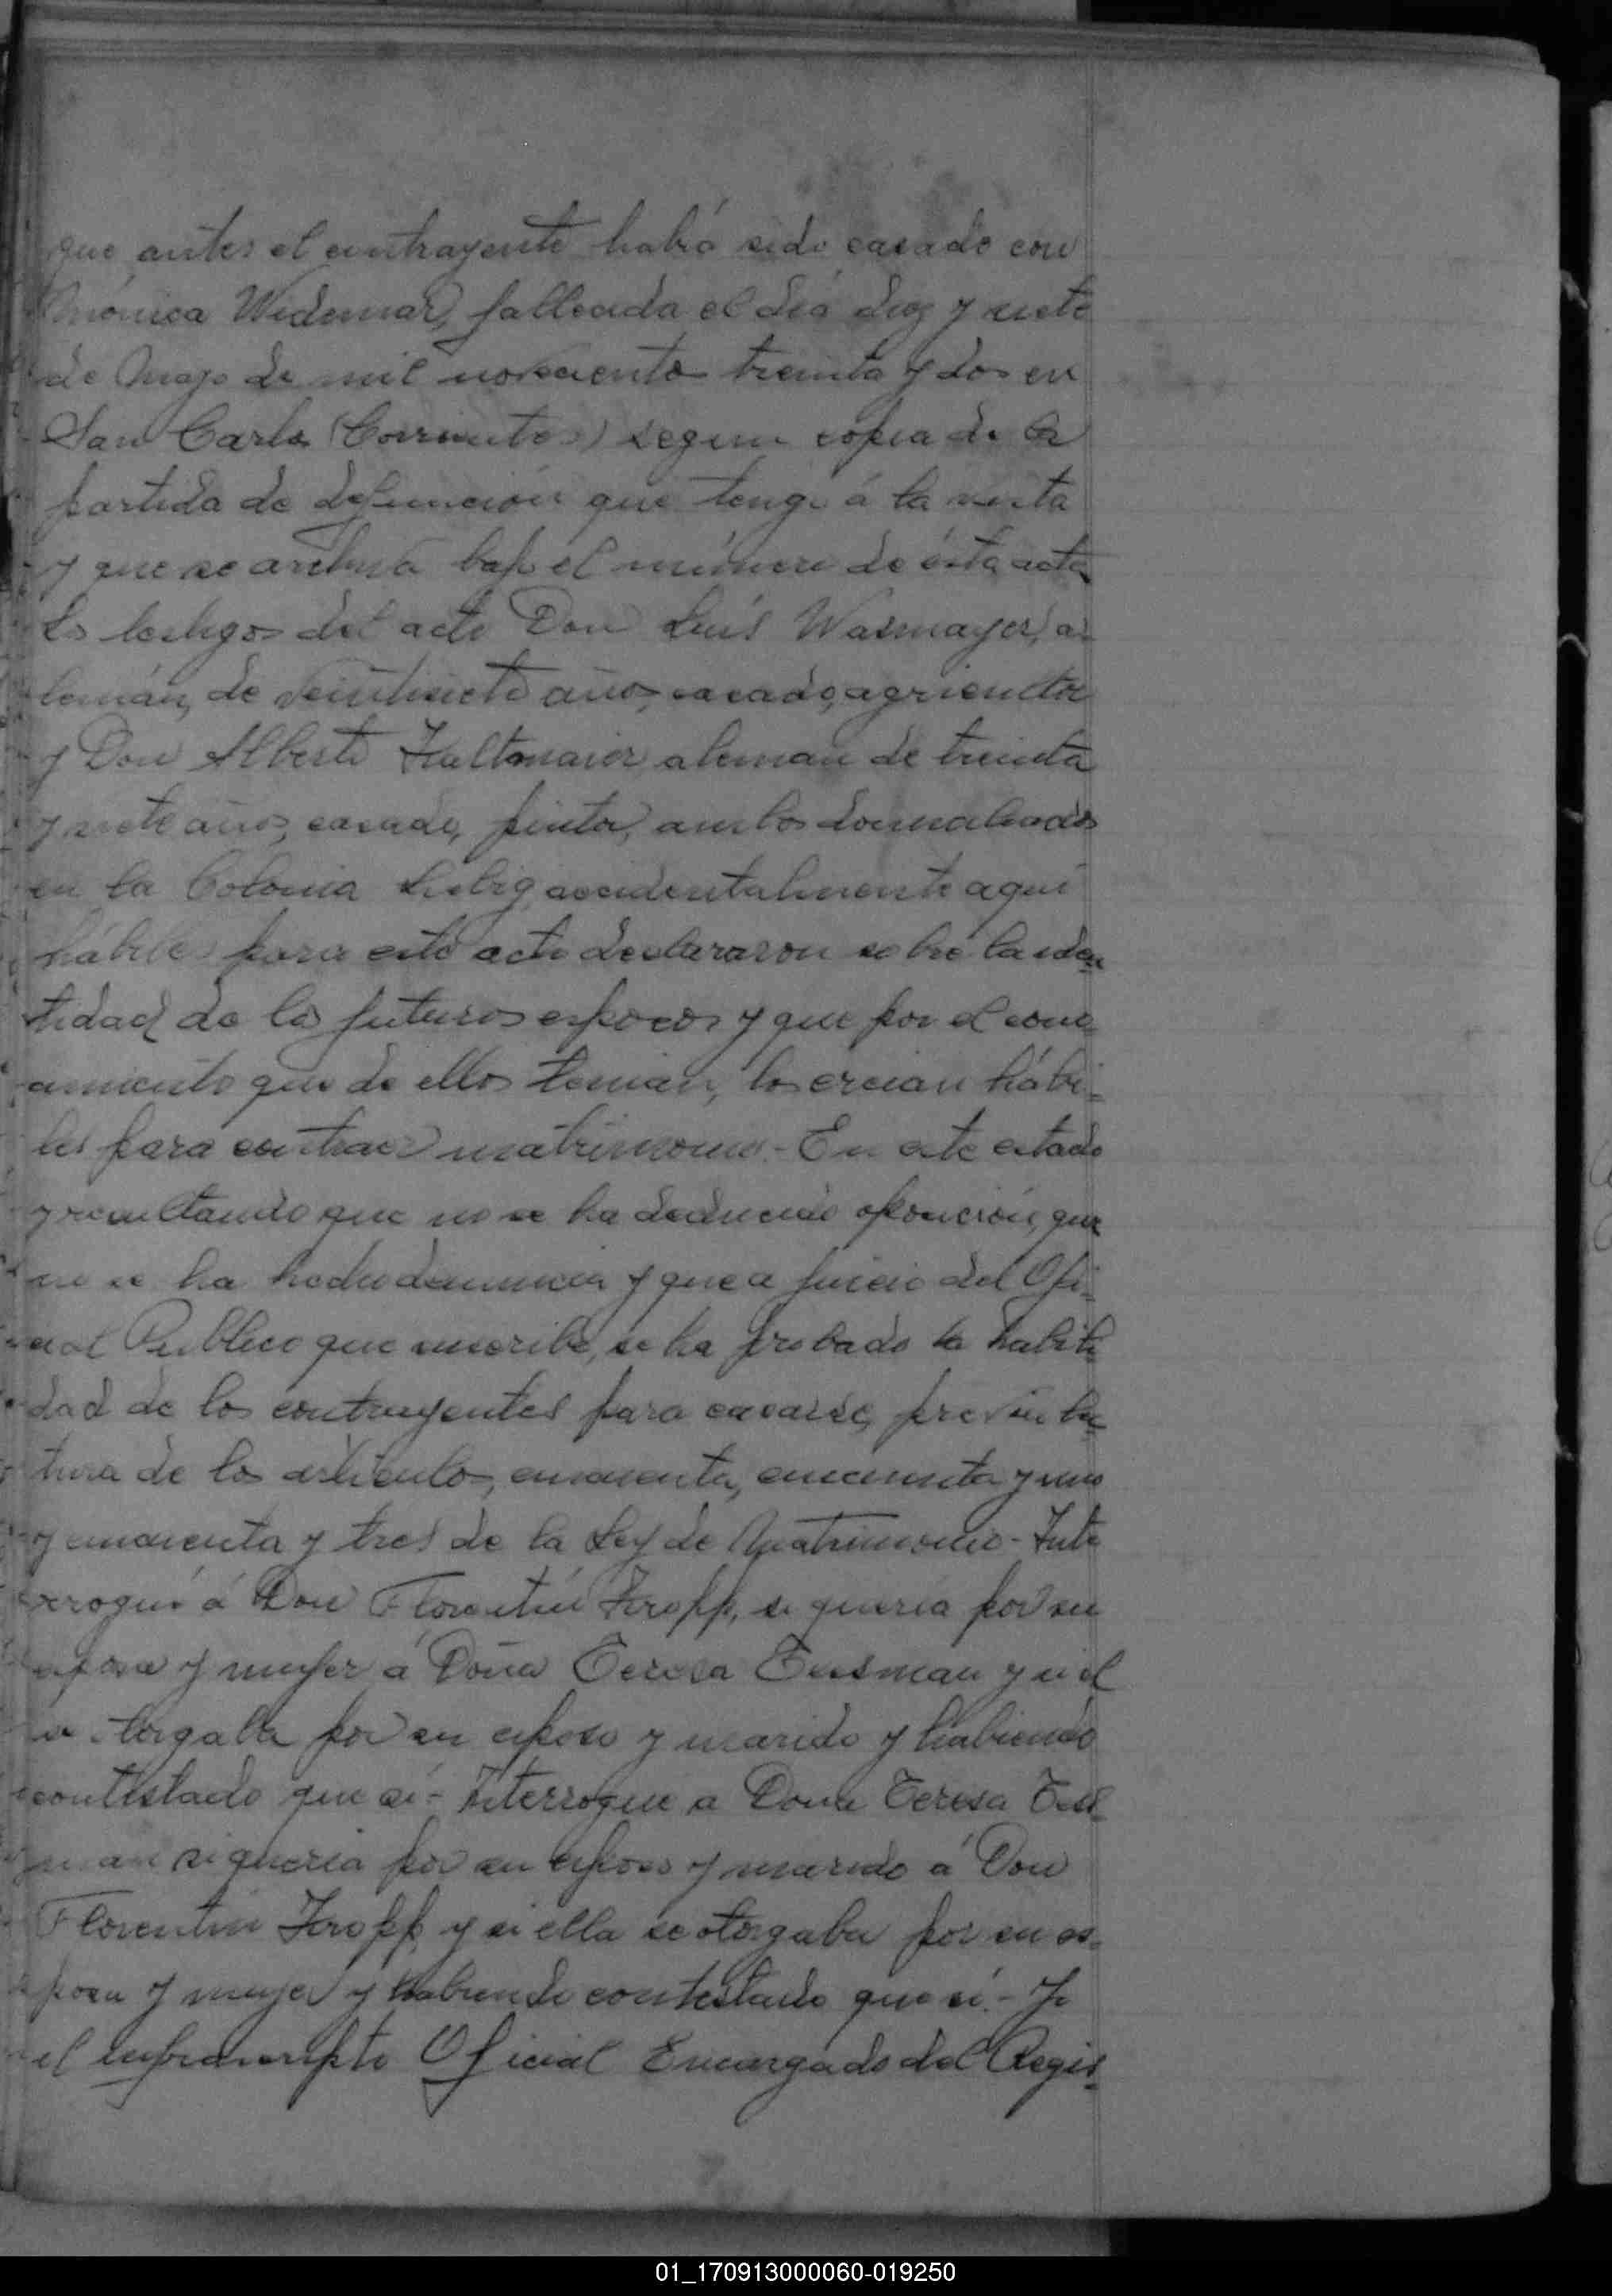 que antes el contrayente había sido casado con
Mónica Widemar, fallecida el día diez y siete
de Mayo de mil novecientos treinta y dos en
San Carlos (Corrientes) segun copia de la
partida de defunción que tengo á la vista
y que se archiva bajo el número de ésta acta
Los testigos del acto Don Luís Wasmayer, a-
lemán, de veintisiete años, casado, agricultor
y Don Alberto Haltmaier, aleman de treinta
y siete años, casado, pintor, ambos domiciliados
en la Colonia Liebig, accidentalmente aquí
hábiles para este acto declararon sobre la iden
tidad de los futuros esposos y que por el cono-
cimiento que de ellos tenian, los creian hábi-
les para contraer matrimonio.- En este estado
y resultando que no se ha deducido oposición, que
no se ha hecho denuncia y que a juicio del Ofi-
cial Publico que suscribe, se ha probado la habili
dad de los contrayentes para casarse, previa lec
tura de los artículos, cincuenta, cincuenta y uno
y cincuenta y tres de la Ley de Matrimonio- Inte
rrogué á Don Florentín Kropp, si queria por su
esposa y mujer á Doña Teresa Eusman y si el
se otorgaba por su esposo y marido y habiendo
contestado que sí- Interrogue a Doña Teresa Eus-
man si queria por su esposo y marido á Don
Florentin Kropp y si ella se otorgaba por su es-
posa y mujer y habiendo contestado que sí.- Yo
el infrascripto Oficial Encargado del Regis-
01_170913000060-019250